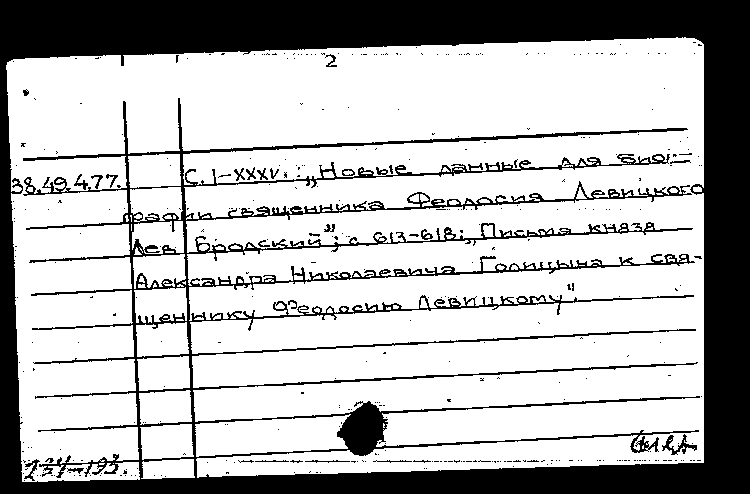 2
38.49.4.77. С. I-XXXV.: „Новые данные для био-
графии священника Феодосия Левицкого
Лев Бродский"; с. 613-618: „Письма князя
Александра Николаевича Голицына к свя-
щеннику Феодосию Левицкому".